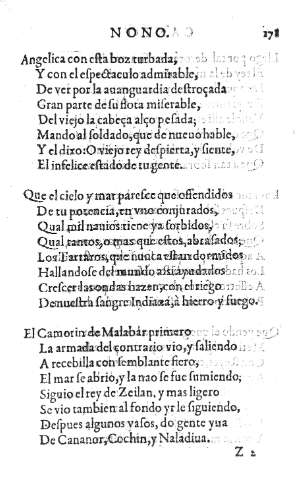 NONO. 178
Angelica con esta boz turbada,
Y con el espectaculo admirable,
De ver por la auanguardia destroçada
Gran parte de su flota miserable,
Del viejo la cabeça alço pesada;
Mando al soldado, que de nueuo hable,
Y el dixo: O viejo rey despierta, y siente,
El infelice estado de tu gente.
Que el cielo y mar paresce que offendidos
De tu potencia, en vno conjurados,
Qual mil nauios tiene ya sorbidos,
Qual tantos, o mas que estos, abrasados,
Los Tartaros, que nunca estan dormidos
Hallandose del mundo assi ayudados
Crescer las ondas hazen, con el riego
De nuestra sangre Indiana, à hierro y fuego.
El Camorin de Malabár primero
La armada del contrario vio, y saliendo
A recebilla con semblante fiero,
El mar se abrio, y la nao se fue sumiendo;
Siguio el rey de Zeilan, y mas ligero
Se vio tambien al fondo yr le siguiendo,
Despues algunos vasos, do gente yua
De Cananor, Cochin, y Naladiua.
Z 2